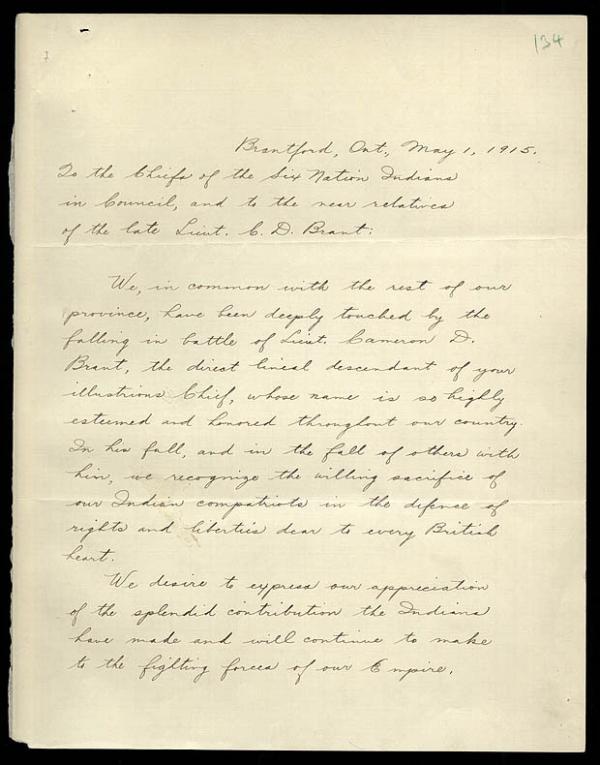 134
Brantford, Ont., May 1, 1915.
To the Chiefs of the Six Nation Indians
in Council, and to the near relatives
of the late Lieut. C. D. Brant:
We, in common with the rest of our
province, have been deeply touched by the
falling in battle of Lieut. Cameron D.
Brant, the direct lineal descendant of your
illustrious Chief, whose name is so highly
esteemed and honored throughout our country.
In his fall, and in the fall of others with
him, we recognize the willing sacrifice of
our Indian compatriots in the defence of
rights and liberties dear to every British
heart.
We desire to express our appreciation
of the splendid contribution the Indians
have made and will continue to make
to the fighting forces of our Empire.